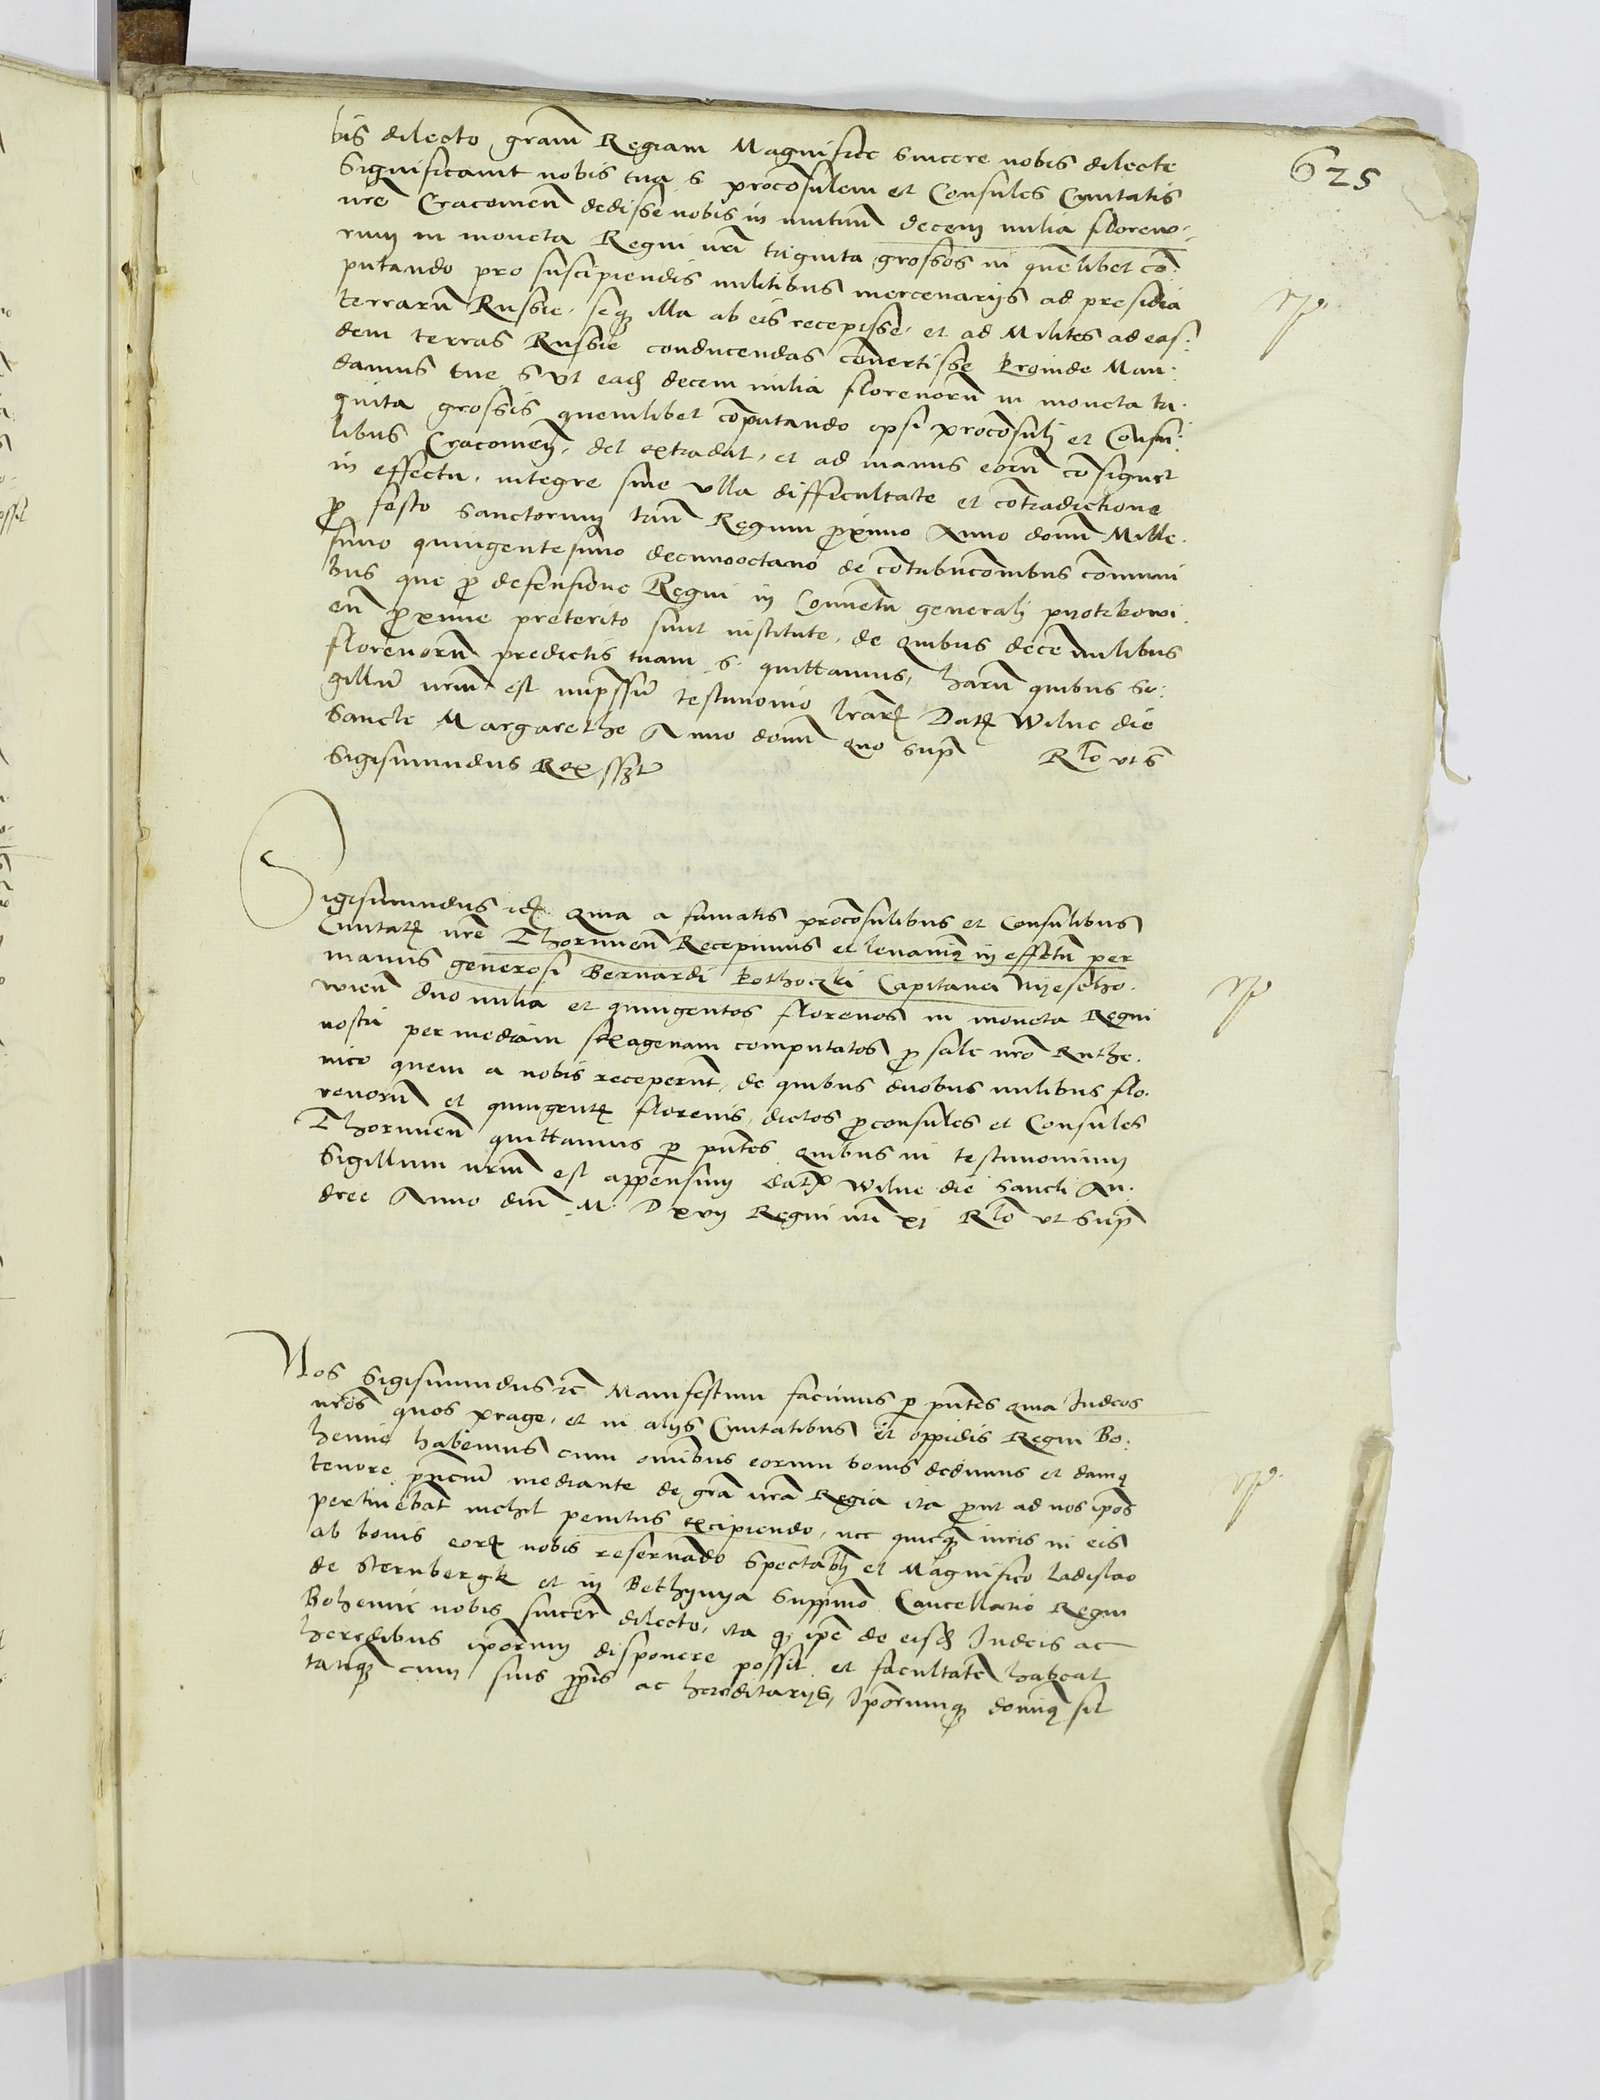 625
bis dilecto gram̄ Regiam Magnifice sincere nobis dilecte
Significauit nobis tua S. proconsulem et Consules Ciuitatis
nr̄e Cracouien̄ dedisse nobis in mutuū decem milia floreno-
rum in moneta Regni nr̄i triginta grossos in quēlibet cō-
putando pro suscipiendis militibus mercenarijs ad presidia
terrarū Russie, seqȝ illa ab eis recepisse, et ad Milites ad eas-
dem terras Russie conducendas cōuertisse Proinde Man-
damus tue S. vt eadē decem milia florenorū in moneta tri-
ginta grossis quemlibet cōputando ipsi proconsuli et Consu-
libus Cracouien̄, det extradat, et ad manus eorū cōsignet
in effectu, integre sine vlla difficultate et cōtradictione
p̄ festo Sanctorum triū Regum p̄ximo Anno domī Mille-
simo quingentesimo decimooctauo de cōtribuc̄onibus cōmuni
bus que p̄ defensione Regni in Conuentu generali piotrkowi-
en̄ p̄xime preterito sunt institute, de quibus decē milibus
florenorū predictis tuam S. quittamus, harū quibus Si-
gillū nr̄m est imp̄ssū testimonio lr̄arȝ Datȝ Wilne die
Sancte Margarethe Anno domī quo supȓa Rl̄o vt S
Sigismundus Rex sszt
Sigismundus etc̄ Quia a famatis proconsulibus et Consulibus
Ciuitatȝ nr̄e Thorunien̄ Recepimus et leuauimȝ in effectū per
manus generosi Bernardi Pothoczki Capitanei Myesctho-
wien̄ duo milia et quingentos florenos in moneta Regni
nostri per mediam sexagenam computatos p̄ sale nr̄o Ruthe-
nico quem a nobis receperūt, de quibus duobus milibus flo-
renorū et quingentȝ florenis, dictos p̄consules et Consules
Thorunien̄ quittamus p̄ pn̄tes Quibus in testimonium
Sigillum nr̄m est appensum Datȝ Wilne die Sancti An-
dree Anno dn̄i M. D xvij Regni nr̄i xj Rl̄o vt Supȓa
Nos Sigismundus etc̄ Manifestum facimus p̄ pn̄tes quia Iudeos
nr̄os quos prage, et in alijs Ciuitatibus et oppidis Regni Bo-
hemie habemus cum om̄ibus eorum bonis dedimus et damȝ
tenore pn̄ciū mediante de gr̄a nr̄a Regia ita p̄ut ad nos ip̄os
pertinebāt nichil penitus excipiendo, nec quicqȝ iuris in eis
ab bonis eorȝ nobis reseruādo Spectabȝ et Magnifico Ladislao
de Sternbergk et in Bethynya Supp̄mo Cancellario Regni
Bohemie nobis sincerȇ dilecto, ita qȝ ip̄e de eisdȝ Iudeis ac
heredibus ip̄orum disponere possit et facultatē habeat
tanqȝ cum suis pp̄is ac hereditarijs, Ip̄orumqȝ domiȝ sit